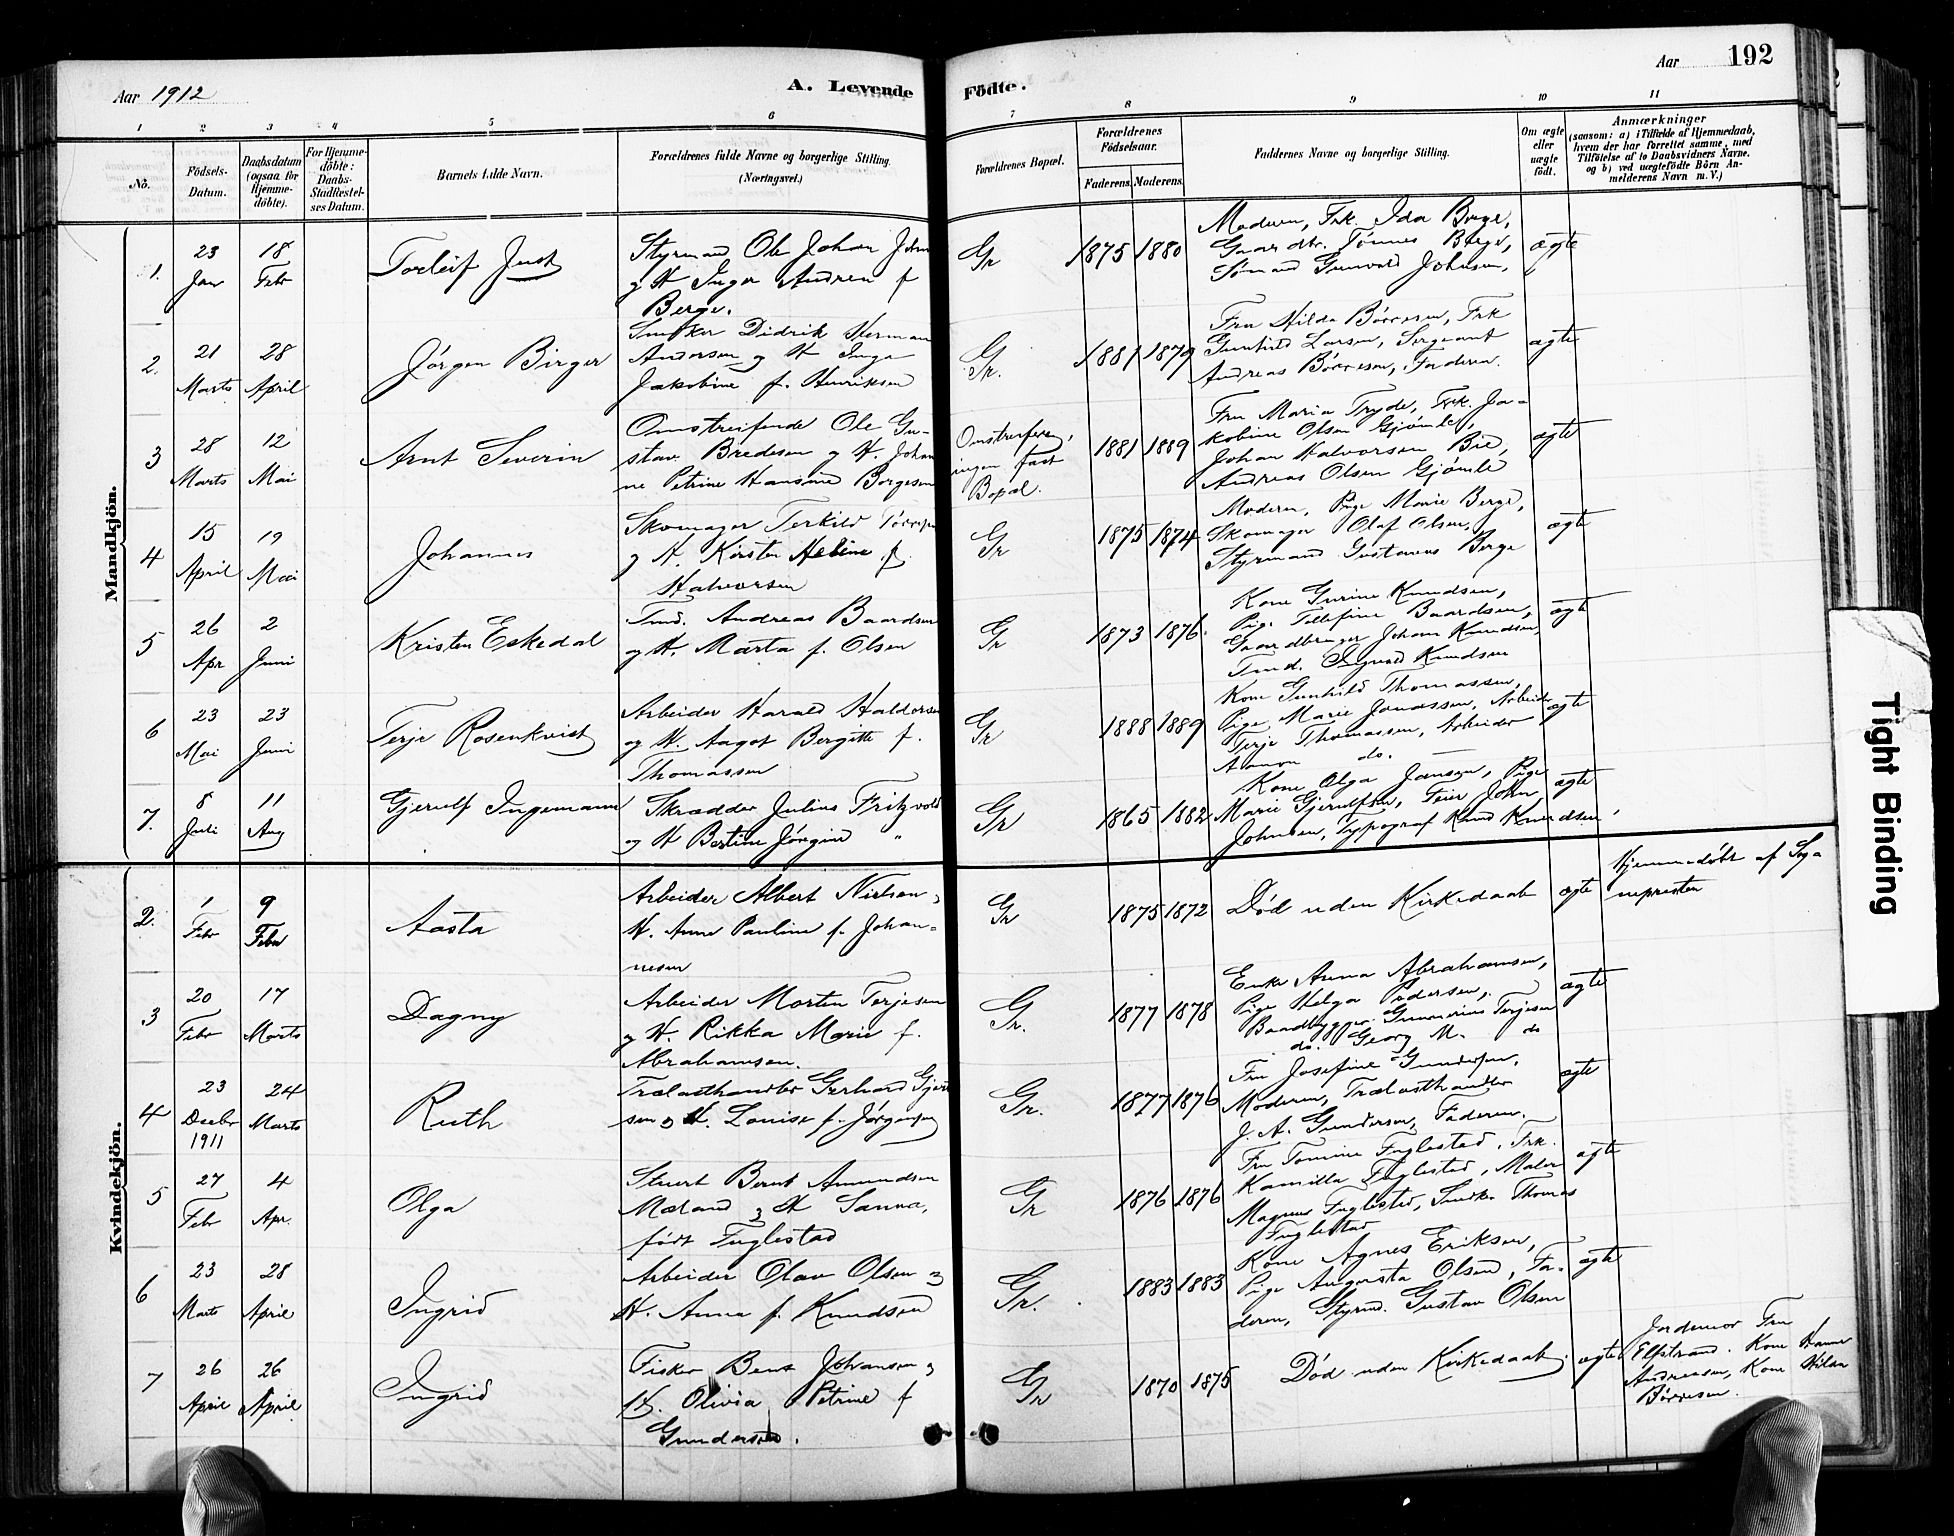 Aar 1912
A. Levende
Födte.
Aar
192
1
2
3
4
5
6
7
8
9
10
11
No.
Födsels-
Datum.
Daabsdatum
(ogsaa for
Hjemme-
döbte).
For Hjemme-
döbte:
Daabs-
Stadfæstel-
ses Datum.
Barnets fulde Navn.
Forældrenes fulde Navne og borgerlige Stilling.
(Næringsvei.)
Forældrenes Bopæl.
Forældrenes
Födselsaar.
Faderens.
Moderens.
Faddernes Navne og borgerlige Stilling.
Om ægte
eller
uægte
födt.
Anmærkninger
(saasom: a) i Tilfælde af Hjemmedaab,
hvem der har forrettet samme, med
Tilföielse af to Daabsvidners Navne,
og b) ved uægtefödte Börn An-
melderens Navn m. V.)
Mandkjön.
1.
23
Jan
18
Febr
Torleif Just
Styrmand Ole Johan John
og H. Inger Andrea f
Berge.
Gr
1875
1880
Moderen, Frk. Ida Berge,
Gaardbr. Tønnes Berge,
Sømand Gunvald Johnsen,
ægte
2.
21
Marts
28
April
Jørgen Birger
Snekker Didrik Herman
Andersen og H Inga
Jakobine f. Henriksen
Gr.
1881
1879
Fru Hilda Børresen, Frk
Gunhild Larsen, Sergeant
Andreas Børresen, Faderen.
ægte
3
28
Marts
12
Mai
Arnt Severin
Omstreifende Ole Gu-
stav Bredesen og H. Johan
ne Petrine Hansine Borgesen
Omstreifere,
ingen fast
Bopæl.
1881
1889
Fru Maria Tryde, Frk. Ja-
kobine Olsen Gjømle,
Johan Halvorsen Bie,
Andreas Olsen Gjømle
ægte
4
15
April
19
Mai
Johannes
Skomager Terkild Tørres
og H. Kirsten Helene f.
Halvorsen
Gr
1875
1874
Moderen, Pige Marie Berge,
Skomager Olaf Olsen,
Styrmand Gustavus Berge
ægte
5
26
Apr
2
Juni
Kristen Eskedal
Tmd. Andreas Baardsen
og H. Marta f. Olsen
Gr
1873
1876.
Kone Gurine Knudsen,
Pige Tellefine Baardsen,
Gaardbruger Johan Knudsen,
Tmd. Ingvald Knudsen
ægte
6
23
Mai
23
Juni
Terje Rosenkvist
Arbeider Harald Haldorsen
og H. Aagot Bergitte f.
Thomassen
Gr
1888
1889
Kone Gunhild Thomassen,
Pige Marie Jonassen, Arbeider
Terje Thomassen, Arbeider
Aanon do.
ægte
7.
8
Juli
11
Aug
Gjerulf Ingemann
Skrædder Julius Fritzvold
og H Bertine Jørgine "
Gr
1865
1882
Kone Olga Jansen, Pige
Marie Gjerulfsen, Feier John
Johnsen, Typograf Knud Knudsen,
ægte
Kvindekjön.
2.
1
Febr
9
Febr
Aasta
Arbeider Albert Nielsen,
H. Anne Pauline f. Johan-
nesen
Gr
1875
1872
Død uden Kirkedaab
ægte
Hjemmedøbt af Sog
nepresten
3
20
Febr
17
Marts
Dagny
Arbeider Morten Terjesen
og H. Rikka Marie f.
Abrahamsen.
Gr.
1877
1878
Enke Anna Abrahamsen,
Pige Helga Pedersen,
Baadbygger Gunnerius Terjesen
do. Georg M. do
ægte
4
23
Decbr
1911
24
Marts
Ruth
Trælasthandler Gerhard Gjert
sen og H. Louise f. Jørgensen
Gr.
1877
1876
Fru Josefine Gundersen,
Moderen, Trælasthandler
J. A. Gundersen, Faderen.
ægte
5
27
Febr
4
Apr.
Olga
Stuert Bernt Amundsen
Mæland og H Sanna,
født Fuglestad
Gr
1876
1876
Fru Tomine Fuglestad, Frk.
Kamilla Fuglestad, Maler
Magnus Fuglestad, Snedker Thomas
Fuglestad
ægte
6
23
Marts
28
April
Ingrid
Arbeider Olav Olsen og
H. Anna f. Knudsen
Gr.
1883
1883
Kone Agnes Eriksen,
Pige Augusta Olsen, Fa-
deren, Styrmd. Gustav Olsen
ægte
7
26
April
26
April
Ingrid
Fisker Bent Johansen og
H. Olivia Petrine f
Gundersen.
Gr
1870
1875
Død uden Kirkedaab.
ægte
Jordemor Fru
Elfstrand. Kone Hanne
Andreasen, Kone Hilda
Børresen.
Tight Binding